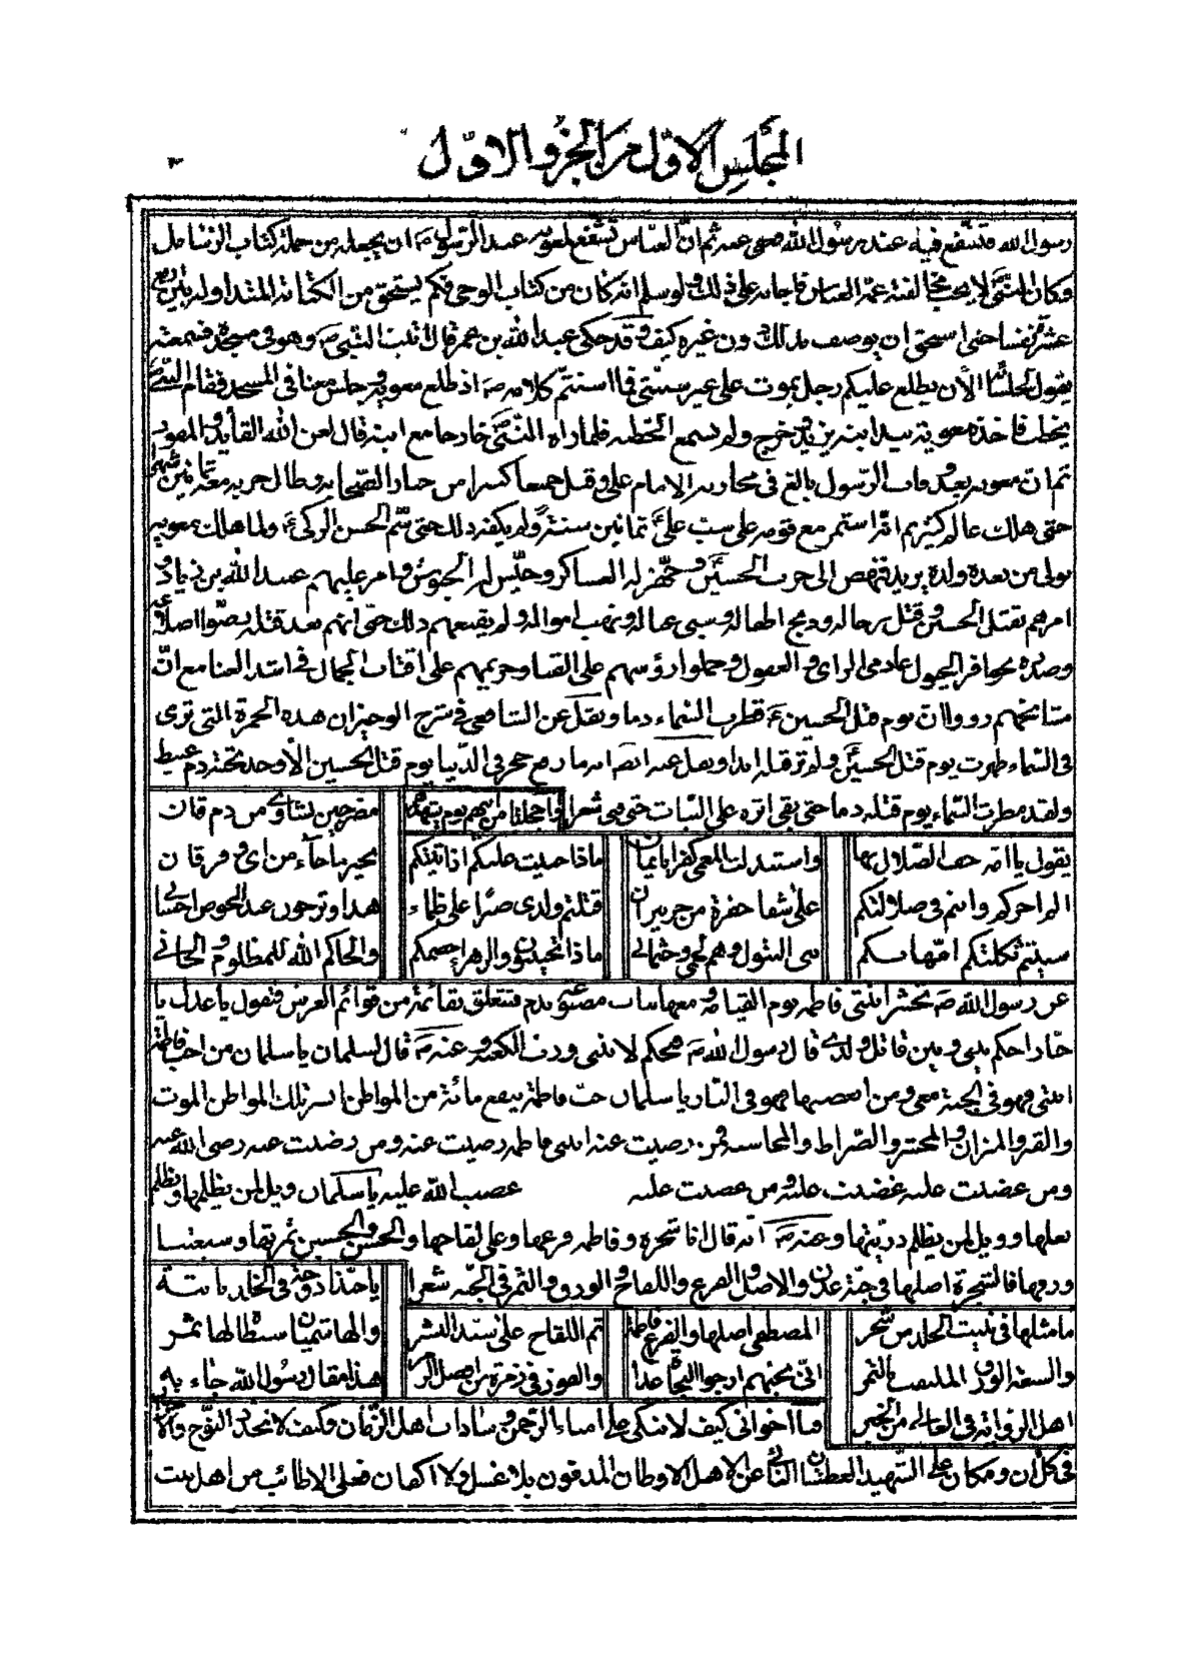 المجلس الاول من الجزو الاول
٣
رسول الله فتشفع فيه عند رسول الله فعفى عنه ثم ان العباس تشفع لمعوية عند الرسول ص ان يجعله من جملة كتاب الرسايل
وكان النبي لا يحب مخالفة عمه العباس فاجابه على ذلك ولو سلم انه كان من كتاب الوحي فكم يستحق من الكتابة المتداولة بين
عشر نفسا حتى استحق ان يوصف بذلك دون غيره كيف وقد حكى عبد الله بن عمر قال اتيت النبي ص وهو في مسجده فسمعته
يقول لجلسائه الآن يطلع عليكم رجل يموت على غير سنتي فما استتم كلامه ص اذ طلع معوية وجلس معنا في المسجد فقام النبي
يخطب فاخذ معوية بيد ابنه يزيد وخرج ولم يسمع الخطبة فلما راه النبي خارجا مع ابنه قال لعن الله القايد والمقود
ثم ان معوية بعد وفات الرسول بالغ في محاربة الامام علي وقتل جمعا كثيرا من خيار الصحابة وطال حربه معه ثمانين شهرا
حتى هلك عالم كثير ثم انه استمر مع قومه على سب علي ثمانين سنة ولم يكفه ذلك حتى سم الحسن الزكي ع ولما هلك معوية
تولى من بعده ولده يزيد فنهض الى حرب الحسين وجهز له العساكر وجيش له الجيوش وامر عليهم عبيد الله بن زياد و
امرهم بقتل الحسين وقتل رجاله وذبح اطفاله وسبى عياله ونهب امواله ولم يقنعهم ذلك حتى انهم بعد قتله رضوا اضلاعه
وصدره بحوافر الخيول عادمى الراى والعقول وحملوا رؤسهم على القنا وحريمهم على اقتاب الجمال في اشد العنا مع ان
مشايخهم رووا ان يوم قتل الحسين ع قطرت السماء دما ونقل عن الشافعي في شرح الوجيز ان هذه الحمرة التي ترى
في السماء ظهرت يوم قتل الحسين ولم تر قبله ابدا ونقل عنه ايضا انه ما رفع حجر في الدنيا يوم قتل الحسين الا وجد تحته دم عبيط
ولقد مطرت السماء يوم قتله دما حتى بقى اثره على النبات حتى فنى شعرا واخجلتا من ابيهم يوم يشهدهم مضرجين نشاوى من دم قان
يقول يا امة حف الضلال بها واستبدلت للعمى كفرا بايمان ماذا جنيت عليكم اذ اتيتكم بخير ما جاء من اى وفرقان
الم اجركم وانتم في ضلالتكم على شفا حفرة من حر نيران قتلتم ولدى صبرا على ظماء هذا وترجون عند الحوض احسانى
سبيتم ثكلتكم امهاتكم بنى البتول وهم لحمى وجثمانى ماذا تجيبون والزهراء خصمكم والحاكم الله للمظلوم والجانى
عن رسول الله ص تحشر ابنتي فاطمة يوم القيامة ومعها ثياب مصبوغة بدم فتتعلق بقائمة من قوائم العرش وتقول يا عدل يا
جبار احكم بيني وبين قاتل ولدى قال رسول الله ص فيحكم لابنتي ورب الكعبة وعنه ص قال لسلمان يا سلمان من احب فاطمة
ابنتي فهو في الجنة معى ومن ابغضها فهو في النار يا سلمان حب فاطمة ينفع مائة من المواطن ايسر تلك المواطن الموت
والقبر والميزان والمحشر والصراط والمحاسبة فمن رضيت عنه ابنتي فاطمة رضيت عنه ومن رضيت عنه رضى الله عنه
ومن غضبت عليه غضبت عليه ومن غضبت عليه غضب الله عليه يا سلمان ويل لمن يظلمها ويظلم
بعلها وويل لمن يظلم ذريتها وعنه ص انه قال انا شجرة وفاطمة فرعها وعلي لقاحها والحسن والحسين ثمرتها وشيعتنا
ورقها فالشجرة اصلها في جنة عدن والاصل والفرع واللقاح والورق والثمر في الجنة شعرا يا حبذا دوحة في الخلد نابتة
ما مثلها في نبتت الخلد من شجر المصطفى اصلها والفرع فاطمة ثم اللقاح على سيد البشر والهاشميان سبطاه لها ثمر
والشيعة الورق الملتف بالثمر انى بحبهم ارجو النجاة غدا والفوز في زمرة من افضل الزمر هذا مقال رسول الله جاء به
اهل الرواية في العالى من الخبر فيا اخواني كيف لا نبكى على امناء الرحمن وسادات اهل الزمان وكيف لا نجدد النوح والاحزان
في كل ان ومكان على الشهيد العطشان النائى عن الاهل والاوطان المدفون بلا غسل ولا اكفان فعلى الاطائب من اهل بيت